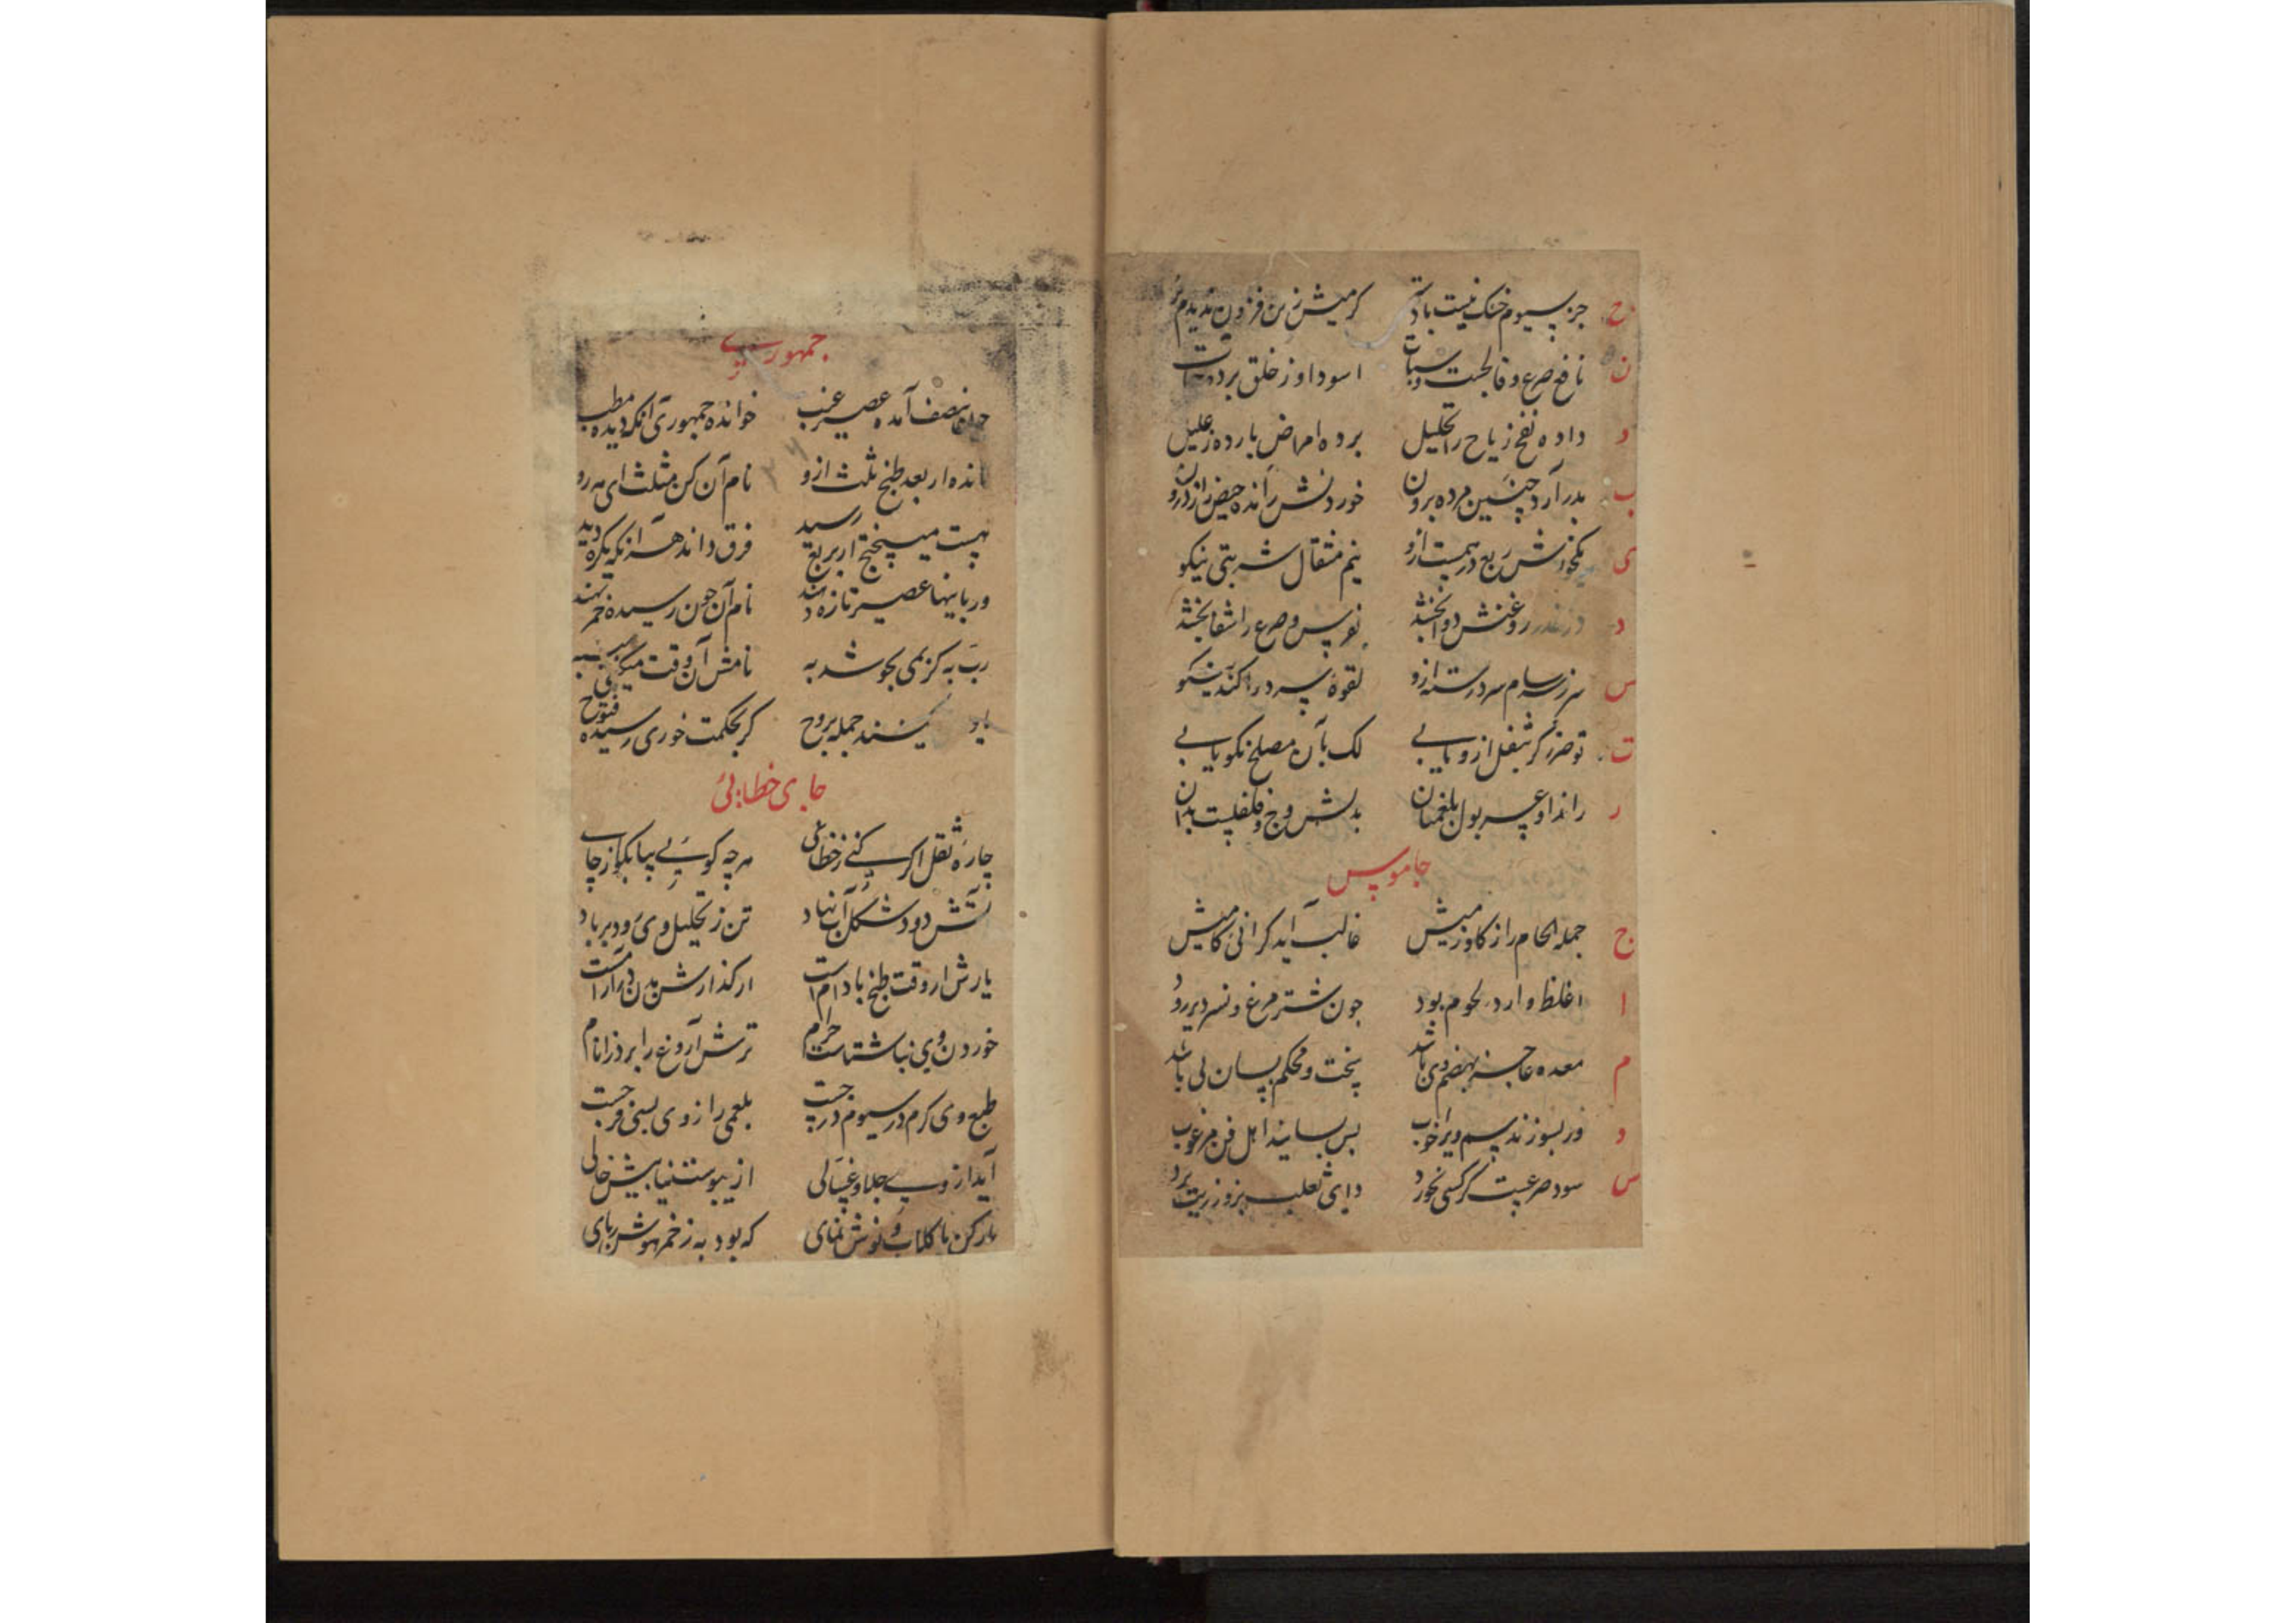 ح جز سیوم خشک نیست باد تر گرمیش زین فزون ندیدم
ن نافع صرع و فالجست و سبات اسود او ز خلق برده
د داده نفخ ریاح را تحلیل برده امراض بارده ز علیل
ب بدر آرد جنین مرده برون خوردنش رانده حیض را ز درون
ی ربع درهمست ازو نیم مثقال شربتی نیکو
د روغنش دوا بخشد نقرس و صرع را شفا بخشد
س سرسام سرد رسته ازو لقوهٔ سرد را کند نیکو
ت تو ضرر گر بثفل ازو یابی لک بآن مصلح نکو یابی
ر راند او چسر بول بلغمیان بدلش وج و فلفلیست بدان
جاموس
ج جمله لحام را ز گاو و ز میش غالب آید گرانی گامیش
ا اغلظ و ارد لحوم بود چون شترمرغ و نسر دیر رود
م معده عاجز بهضم وی باشد پخت و محکم بسان لی باشد
و ور بسوزند سم ویرا خوب بس بسایند اهل فن مرغوب
س سود صرعیست گر کسی نخورد دای ثعلب برو ز زیت برد
جمهوری
بنصف آمده عصیر عنب خوانده جمهوری آنکه دیده مطب
مانده ار بعد طبخ ثلث ازو نام آن کن مثلث ای مه رو
هست میپختج ار بربع رسید فرق داند هر آنکه یکره دید
ور بانیها عصیر تازه نام آن چون رسیده خمر نهند
رب به کز می بجوشد به نامش آن وقت
جمله بروح گر بحکمت خوری رسیده فتوح
چای خطائی
چارهٔ ثقل اگر کنی ز خطائی هر چه گویی بیا بگو از چای
آتش دود شکل آب نهاد تن ز تحلیل وی و دیر باد
یارش ار وقت طبخ بادام است ار گذارش بدن در آرامست
خوردن وی بناشتاست حرام ترش آروغ را برد ز انام
طبع وی گرم در سیوم درجست بلغمی را ز وی بسی فرجست
آید از وی جلا و غسالی از یبوست نیابیش خالی
یار کن با گلاب و نوش نمای که بود به ز خمر هوش ربای